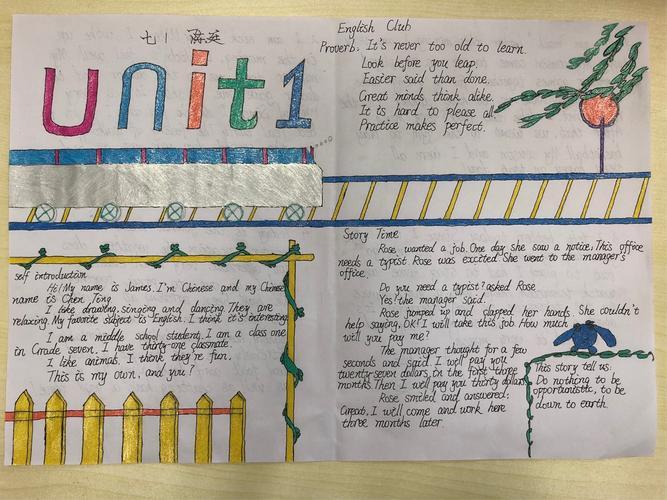 七1
unit1
English Club
Proverb: It's never too old to learn.
Look before you leap.
Easier said than done.
Great minds think alike.
It is hard to please all.
Practice makes perfect.
self introduction
Hi! My name is James. I'm Chinese and my Chinese
name is Chen Ting
I like drawing, singing and dancing. They are
relaxing. My favorite subject is English. I think it's interesting
I am a middle school student. I am a class one
in Grade seven. I have thirty-one classmate.
I like animals. I think they're fun.
This is my own. and you?
Story Time
Rose wanted a job. One day she saw a notice: This office
needs a typist Rose was excited. She went to the manager's
office.
Do you need a typist? asked Rose
Yes! the manager said.
Rose jumped up and clapped her hands. She couldn't
help saying, OK! I will take this job. How much
will you pay me?
The manager thought for a few
seconds and said I will pay you
twenty-seven dollars in the first three
months. Then I will pay you thirty dollars
Rose smiled and answered:
Great, I will come and work here
three months later.
This story tell us:
Do nothing to be
opportunistic, to be
down to earth.